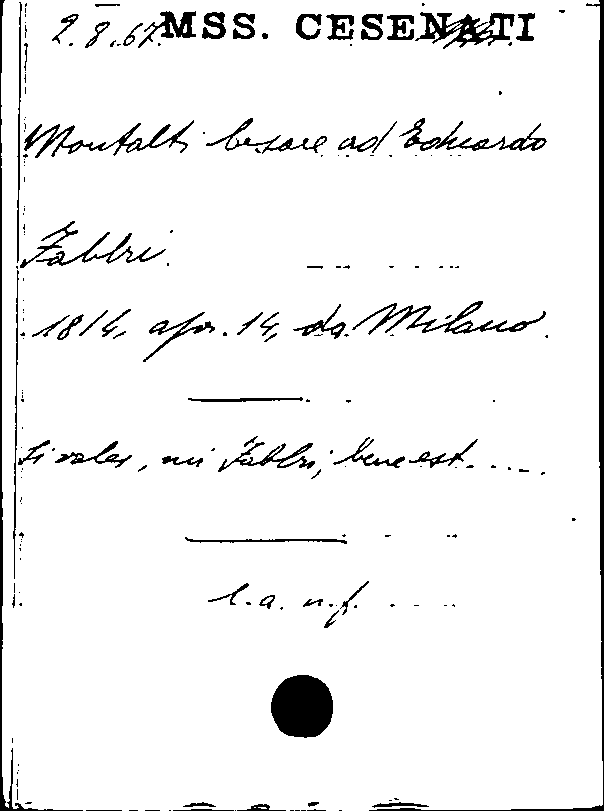 2.8.67. MSS. CESENATI
Montalti Cesare ad Eduardo
Fabbri.
1814, apr. 14, da Milano.
Si vales, mi Fabbri, bene est.....
l.a. n.f.